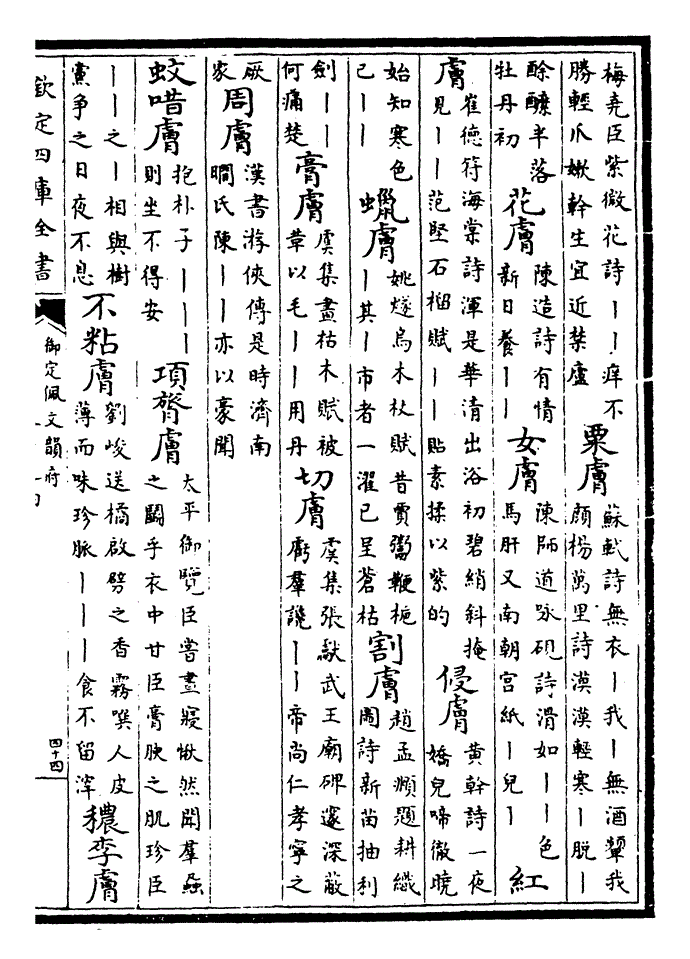 梅堯臣紫微花詩丨丨痒不
勝輕爪嫩幹生宜近禁廬
粟膚
蘇軾詩無衣丨我丨無酒顰我
顔楊萬里詩漠漠輕寒丨脱丨
酴醾半落
牡丹初
花膚
陳造詩有情
新日養丨丨
女膚
陳師道咏硯詩滑如丨丨色
馬肝又南朝宮紙丨兒丨
紅
膚
崔德符海棠詩渾是華清出浴初碧綃斜掩
見丨丨范堅石榴賦丨丨貼素揉以紫的
侵膚
黄幹詩一夜
嬌兒啼徹曉
始知寒色
已丨丨
蠟膚
姚燧烏木杖賦昔賈鬻鞭梔
丨其丨市者一濯已呈蒼枯
割膚
趙孟頫題耕織
圖詩新苗抽利
劍丨丨
何痛楚
膏膚
虞集畫枯木賦被
章以毛丨丨用丹
切膚
虞集張獻武王廟碑邃深蔽
虧羣讒丨丨帝尚仁孝寧之
厥
家
周膚
漢書游俠傳是時濟南
瞷氏陳丨丨亦以豪聞
蚊噆膚
抱朴子丨丨丨
則坐不得安
項脊膚
太平御覽臣嘗晝寢愀然聞羣蝨
之鬭乎衣中甘臣膏腴之肌珍臣
丨丨之丨相與樹
黨爭之日夜不息
不粘膚
劉峻送橘啟劈之香霧噀人皮
薄而味珍脈丨丨丨食不留滓
穠李膚
欽定四庫全書
御定佩文韻府
四十四